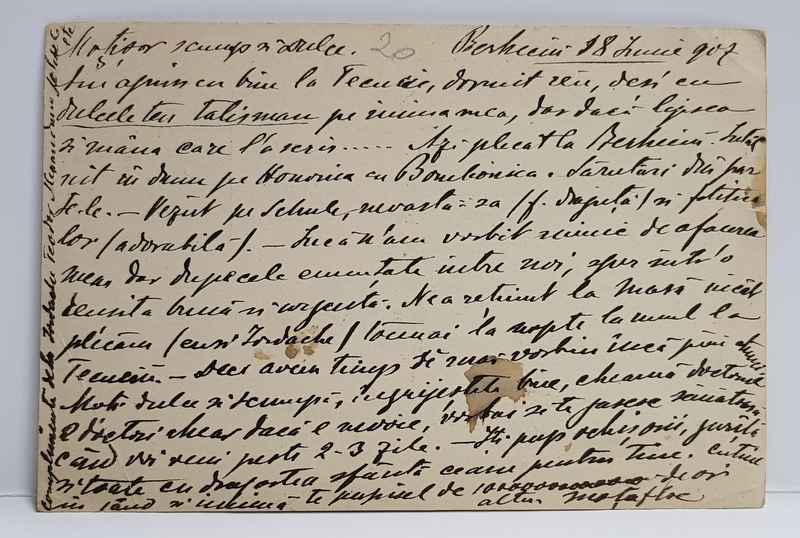 Moțior scump și dulce. 20 Berheciŭ 18 Iunie 907
Am ajuns cu bine la Tecuciŭ, dormit rĕu, deși cu
dulcele teu talisman pe inima mea, dar dacă lipsea
și mâna care l'a scris..... Azi plecat la Berheciŭ. Intâl
nit în drum pe Honorica cu Bombonica. Sărutări din par
te-le. — Vĕzut pe Schule, nevastă-sa (f. drăguță) și fetița
lor (adorabilă). — Încă n'am vorbit nimic de afacerea
mea, dar după cele enunțate între noi, sper într'o
reușită bună și urgentă. Ne a reținut la masă încât
plecăm (eu și Iordache) tocmai la nópte la unul la
Tecuciŭ. — Deci avem timp să mai vorbim încă până atunci.
Moți dulce și scumpă, îngrijește-te bine, cheamă doctorul
2 doctori chear dacă e nevoie, vorbai să te găsesc sănătósă,
când voi veni peste 2-3 zile. — Iți pup ochișorii, gurița
și toate cu dragostea sfântă ce am pentru tine.
în gând și inimă te pupisel de 1000000000000 de ori
al teu Moțafloc
complimente dela Iordache Teodor Alexandrina